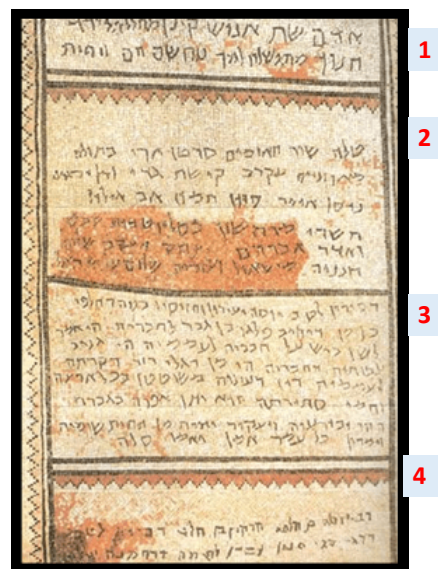 אדם שת אנוש קינן מהללאל ירד
1
חנוך מתושלח למך נח שם חם ויפת
2
טלה שור תאומים סרטן ארי בתולה
מאוזניים עקרב קשת גדי ודלי
ניסן אייר סיון תמוז אב אילול
תשרי מרחשון כסליו טבית שבט
ואדר אברהם יצחק יעקב
חנניה מישאיל ועזריה שלום על ישראל
3
דכירין לטב יוסה ועירון וחזיקיו בנוה דחלפי
כל מן דיהיב פלגו בן גבר לחבריה הי אמר
לשן ביש על חבריה לעממיה הי גניב
צבותיה דחבריה הי מן דגלי רזה דקרתה
לעממיה דין דעינוה משוטטן בכל ארעה
וחמי סתירתה הוא יתן אפוה בגברה
ההו ובזרעיה ויעקור יתיה מן תחות שומיה
וימרון כל עמה אמן ואמן סלה
4
רבי יוסה בן חלפי חזקיו בן חלפי דכירין לטב
דסגי סגי הנון עבדו לשמה דרחמנה